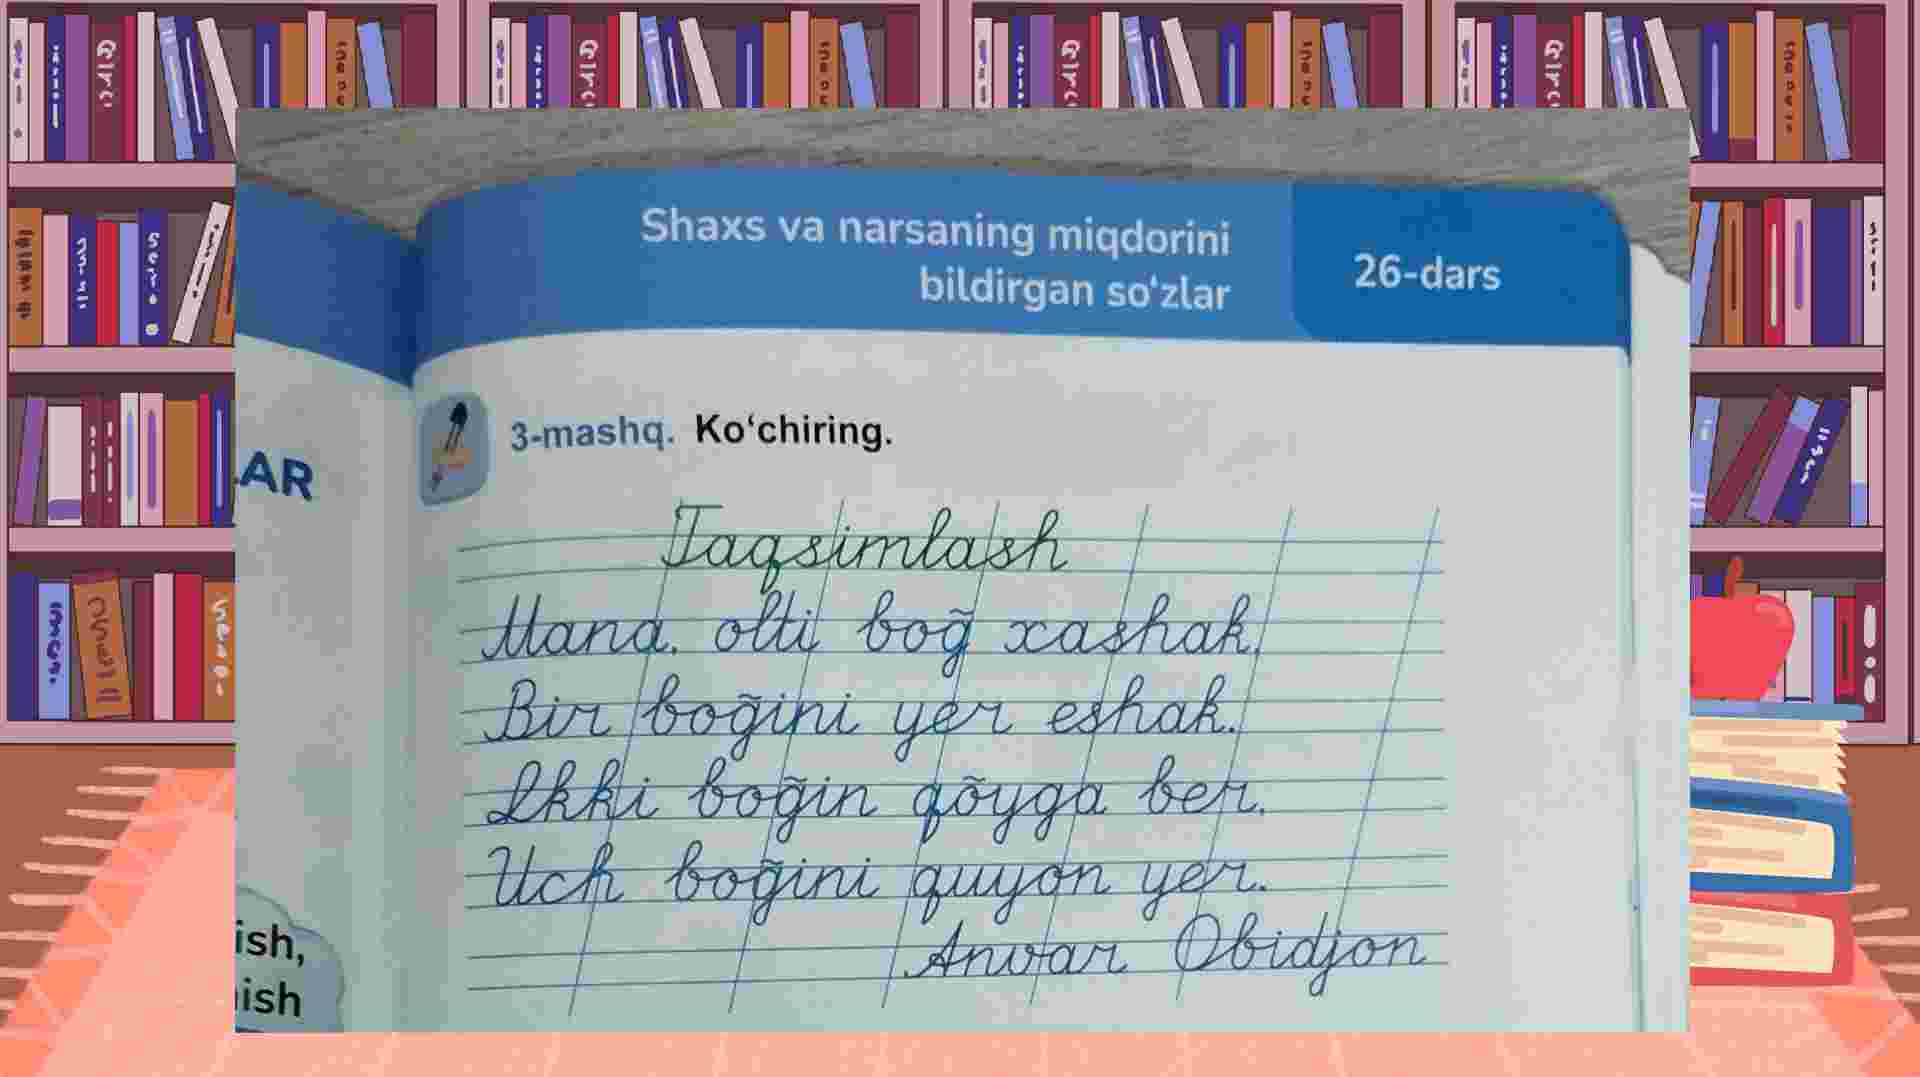 Shaxs va narsaning miqdorini
bildirgan so‘zlar
26-dars
AR
3-mashq. Ko‘chiring.
Taqsimlash
Mana, olti bog̃ xashak.
Bir bog̃ini yer eshak.
Ikki bog̃in qõyga ber.
Uch bog̃ini quyon yer.
Anvar Obidjon
ish,
ish